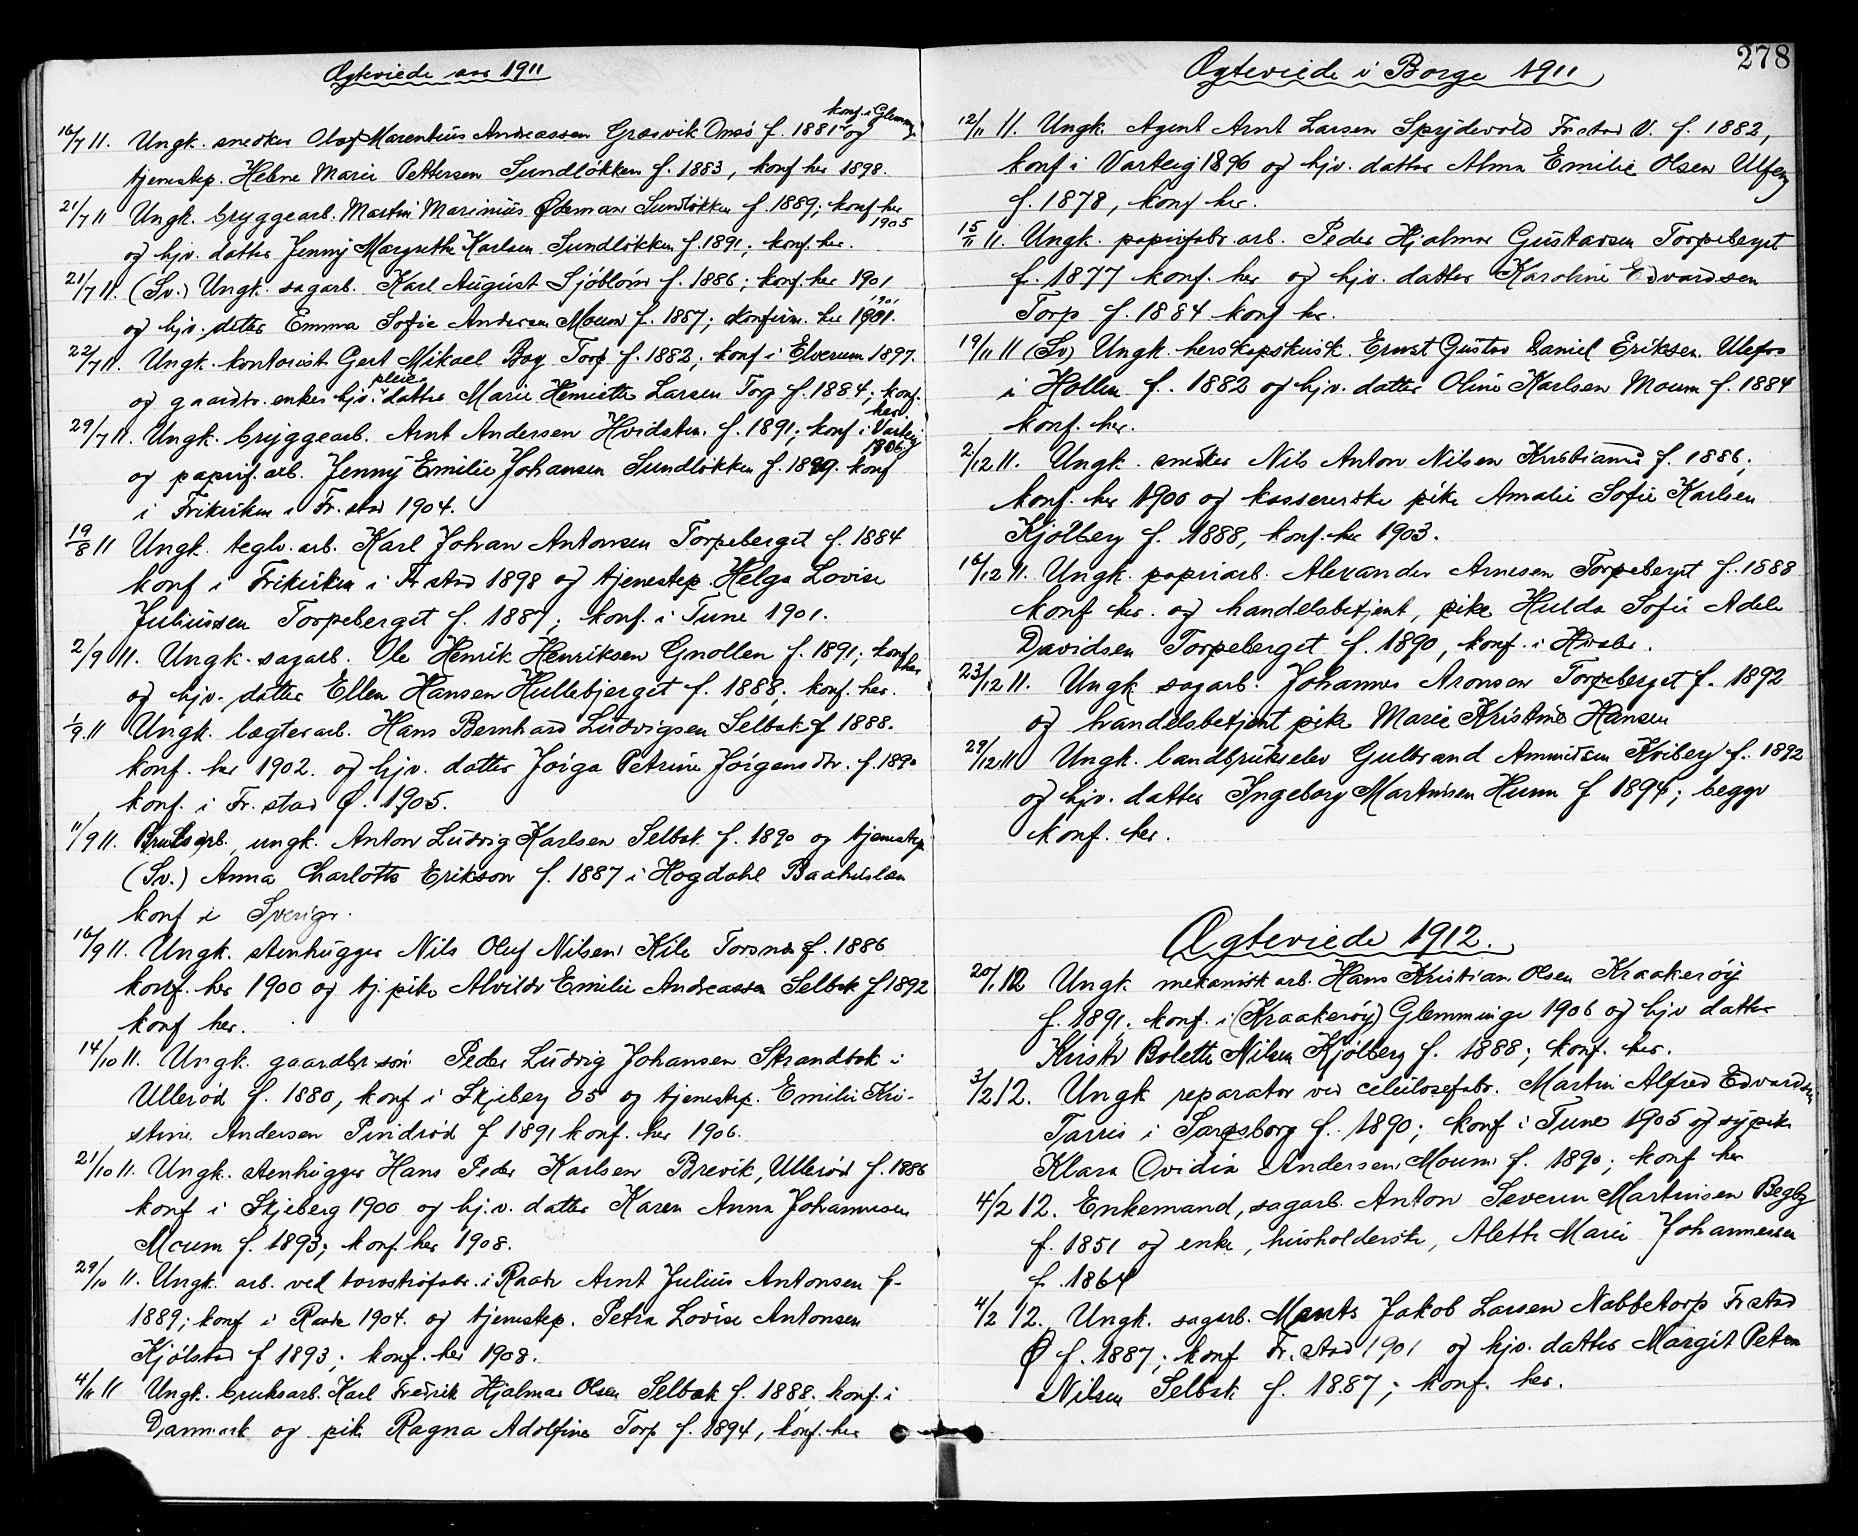 Ægteviede aar 1911
konf. i Glemminge
16/7 11. Ungk. snedker Olaf Marentius Andreassen Græsvik Onsø f. 1881 og
tjenestep. Helene Marie Pettersen Sundløkken f. 1883, konf. her 1898.
21/7 11 Ungk. bryggearb. Martin Marinius Ødeman Sundløkken f. 1889; konf. her
1905
og hjv. datter Jenny Margrethe Karlsen Sundløkken f. 1891; konf. her.
21/7 11. (Sv.) Ungk. sagarb. Karl August Sjöblöm f. 1886; konf. her 1901
og hjv. datter Emma Sofie Andersen Moum f. 1887; konfirm. her 1901.
22/7 11. Ungk. kontorist Gert Mikael Bay Torp f. 1882; konf. i Elverum 1897.
pleie
og gaardbr. enkes hjv. datter Marie Henriette Larsen Torp f. 1884; konf.
her.
29/7 11. Ungk. bryggearb. Arnt Andersen Hvidsten. f. 1891; konf. i Varteig
1906
og papirf. arb. Jenny Emilie Johansen Sundløkken f. 1889. konf
i Frikirken i Fr.stad 1904.
19/8 11 Ungk. teglv. arb. Karl Johan Antonsen Torpeberget f. 1884
konf i Frikirken i Fr stad 1898 og tjenestep. Helga Lovise
Juliussen Torpeberget f. 1887; konf. i Tune 1901.
2/9 11. Ungk. sagarb. Ole Henrik Henriksen Gnollen f. 1891; konf her
og hjv. datter Ellen Hansen Hullebjerget f. 1888; konf. her.
1/9. 11 Ungk. lægterarb. Hans Bernhard Ludvigsen Selbak f 1888.
konf. her 1902. og hjv. datter Jørga Petrine Jørgensdtr. f. 1890
konf. i Fr. stad Ø. 1905.
11/9 11. Bruksarb., ungk. Anton Ludvig Karlsen Selbak f. 1890 og tjenestep
(Sv.) Anna Charlotte Erikson f. 1887 i Hogdahl Baahuslæn
konf i Sverige.
16/9 11. Ungk. stenhugger Nils Oluf Nilsen Kile Torsnes f. 1886
konf. her 1900 og tj. pike Alvilde Emilie Andreassen Selbak f 1892
konf her.
14/10 11. Ungk. gaardbr søn Peder Ludvig Johansen Strandbak i
Ullerød f. 1880, konf i Skjeberg 95 og tjenestep. Emilie Kri-
stine Andersen Pindsrød f 1891 konf. her 1906.
21/10 11. Ungk. stenhugger Hans Peder Karlsen Brevik, Ullerød f. 1886
konf i Skjeberg 1900 og hj.v. datter Karen Anna Johannesen
Moum f. 1893; konf. her 1908.
29/10 11. Ungk. arb. ved torvstrøfabr. i Raade Arnt Julius Antonsen f.
1889; konf i Raade 1904. og tjenestep. Petra Lovise Antonsen
Kjølstad f 1893; konf. her 1908.
4/11 11 Ungk. bruksarb. Karl Fredrik Hjalmar Olsen Selbak f. 1888. konf. i
Danmark og pike Ragna Adolfine Torp f. 1894, konf. her
278
Ægteviede i Borge 1911
12/11 11. Ungk. Agent Arnt Larsen Spydevold Fr stad V. f. 1882,
konf i Varteig 1896 og hjv. datter Alma Emilie Olsen Ulfeng
f. 1878, konf her.
15/11 11. Ungk. papirfabr. arb. Peder Hjalmar Gustavsen Torpeberget
f. 1877 konf. her og hjv. datter Karoline Edvardsen
Torp f. 1884 konf her.
19/11 11 (Sv) Ungk. herskapskusk. Ernst Gustav Daniel Eriksen. Ulefos
i Hollen f. 1882 og hjv. datter Oline Karlsen Moum f. 1884
konf. her.
2/12 11. Ungk. snedker Nils Anton Nilsen Kristiania f. 1886;
konf. her 1900 og kassererske pike Amalie Sofie Karlsen
Kjølberg f. 1888, konf. her 1903.
16/12 11. Ungk. papirarb. Alexander Arnesen Torpeberget f. 1888
konf her. og handelsbetjent, pike Hulda Sofie Adele
Davidsen Torpeberget f. 1890, konf. i Hvaler.
23/12 11. Ungk sagarb. Johannes Aronsen Torpeberget f. 1892
og handelsbetjent pike Marie Kristine Hansen
29/12 11 Ungk. landbrukselev Gulbrand Amundsen Kviberg f. 1892
og hjv. datter Ingeborg Martinsen Hunn f 1894; begge
konf. her.
Ægteviede 1912.
20/1 12 Ungk. mekanisk arb. Hans Kristian Olsen Kraakerøy
f. 1891; konf. i (Kraakerøy) Glemminge 1906 og hjv datter
Kristi Bolette Nilsen Kjølberg f. 1888; konf. her.
3/2 12. Ungk reparatør ved celulosefabr. Martin Alfred Edvardsen
Tarris i Sarpsborg f. 1890; konf i Tune 1905 og sypike
Klara Ovidia Andersen Moum f. 1890; konf her
4/2 12. Enkemand, sagarb. Anton Severin Martinsen Begby
f. 1851 og enke, husholderske, Alette Marie Johannesen
f. 1864
4/2 12. Ungk. sagarb. Marits Jakob Larsen Nabbetorp Fr stad
Ø f. 1887; konf Fr. stad 1901 og hjv. datter Margit Petra
Nilsen Selbak f. 1887; konf. her.